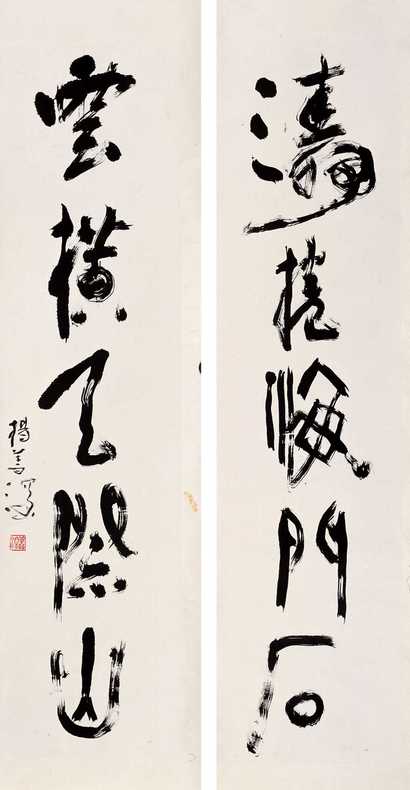 濤捲海門石
雲橫天際山
楊善深